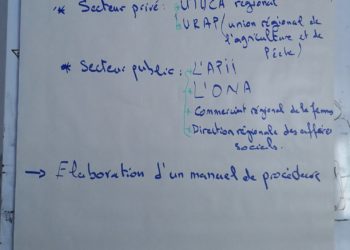 * Secteur privé: UTICA régional
URAP (union régional de
l'agriculture et de
Pêche)
* Secteur public: L'APII
L'ONA
Commerciat régional de la femme
Direction régionale des affaires
sociales.
→ Elaboration d'un manuel de procédure